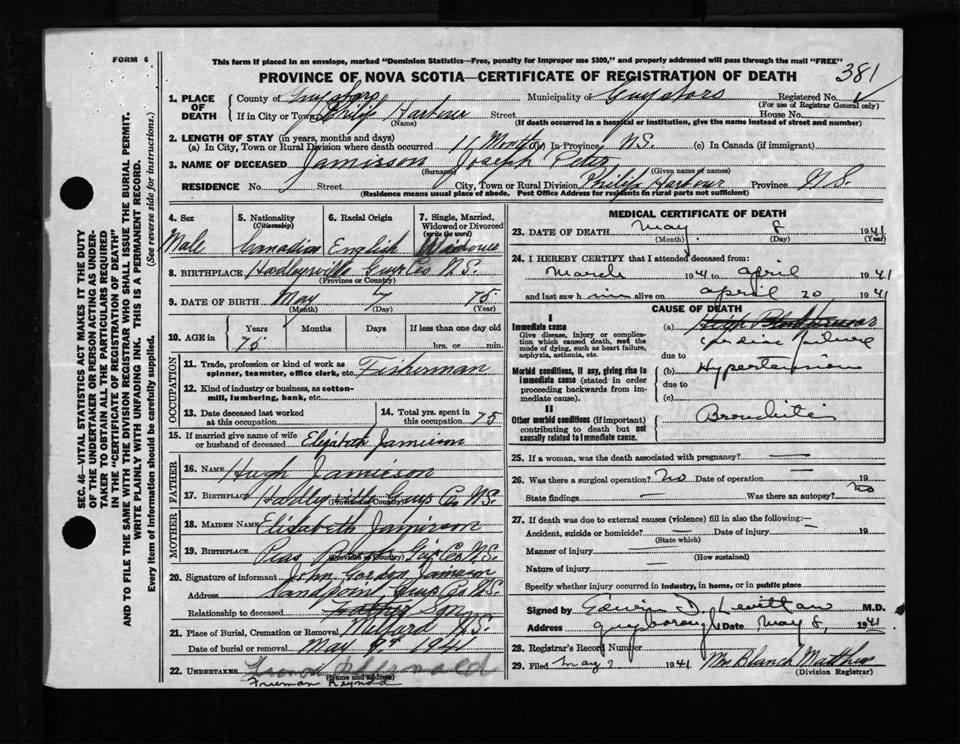 FORM 6
This form if placed in an envelope, marked "Dominion Statistics—Free, penalty for improper use $300," and properly addressed will pass through the mail "FREE"
PROVINCE OF NOVA SCOTIA—CERTIFICATE OF REGISTRATION OF DEATH
381
SEC. 46—VITAL STATISTICS ACT MAKES IT THE DUTY
OF THE UNDERTAKER OR PERSON ACTING AS UNDER-
TAKER TO OBTAIN ALL THE PARTICULARS REQUIRED
IN THE "CERTIFICATE OF REGISTRATION OF DEATH"
AND TO FILE THE SAME WITH THE DIVISION REGISTRAR WHO SHALL ISSUE THE BURIAL PERMIT.
WRITE PLAINLY WITH UNFADING INK. THIS IS A PERMANENT RECORD.
Every item of information should be carefully supplied. (See reverse side for instructions.)
1. PLACE OF DEATH
County of Municipality of Registered No.
(For use of Registrar General only)
If in City or Town Philip Harbour Street House No.
(Name) (If death occurred in a hospital or institution, give the name instead of street and number)
2. LENGTH OF STAY (in years, months and days)
(a) In City, Town or Rural Division where death occurred 11 Months (b) In Province N.S. (c) In Canada (if immigrant)
3. NAME OF DECEASED Jamieson Joseph Peter
(Surname) (Given name or names)
RESIDENCE No. Street City, Town or Rural Division Philip Harbour Province N.S.
(Residence means usual place of abode. Post Office Address for residents in rural parts not sufficient)
4. Sex
Male
5. Nationality
(Citizenship)
Canadian
6. Racial Origin
English
7. Single, Married,
Widowed or Divorced
(write the word)
8. BIRTHPLACE Hadleyville Guys Co N.S.
(Province or Country)
9. DATE OF BIRTH May 7 75
(Month) (Day) (Year)
10. AGE in Years Months Days If less than one day old
75 hrs. or min.
OCCUPATION
11. Trade, profession or kind of work as
spinner, teamster, office clerk, etc. Fisherman
12. Kind of industry or business, as cotton-
mill, lumbering, bank, etc.
13. Date deceased last worked
at this occupation
14. Total yrs. spent in
this occupation 75
15. If married give name of wife
or husband of deceased Elizabeth Jamieson
FATHER
16. NAME Hugh Jamieson
17. BIRTHPLACE Hadleyville Guys Co N.S.
(Province or Country)
MOTHER
18. MAIDEN NAME Elizabeth Jamieson
19. BIRTHPLACE Guys Co N.S.
(Province or Country)
20. Signature of informant John Gordon Jamieson
Address Sandpoint, Guys Co N.S.
Relationship to deceased Son
21. Place of Burial, Cremation or Removal Milford N.S.
Date of burial or removal May 9th 1941
22. UNDERTAKER
(Name and address)
Freeman
MEDICAL CERTIFICATE OF DEATH
23. DATE OF DEATH May 8 1941
(Month) (Day) (Year)
24. I HEREBY CERTIFY that I attended deceased from:
March 1941 to April 1941
and last saw him alive on April 20 1941
CAUSE OF DEATH
I
Immediate cause
Give disease, injury or complica-
tion which caused death, not the
mode of dying, such as heart failure,
asphyxia, asthenia, etc.
(a) Cardiac failure
due to
Morbid conditions, if any, giving rise to
immediate cause (stated in order
proceeding backwards from im-
mediate cause).
(b) Hypertension
due to
(c)
II
Other morbid conditions (if important)
contributing to death but not
causally related to immediate cause.
Bronchitis
25. If a woman, was the death associated with pregnancy?
26. Was there a surgical operation? No Date of operation 19
State findings Was there an autopsy? No
27. If death was due to external causes (violence) fill in also the following:
Accident, suicide or homicide? Date of injury 19
(State which)
Manner of injury
(How sustained)
Nature of injury
Specify whether injury occurred in industry, in home, or in public place
Signed by Edwin D. M.D.
Address Guysborough Date May 8, 1941
28. Registrar's Record Number
29. Filed May 9 1941 Mrs Blanch
(Division Registrar)